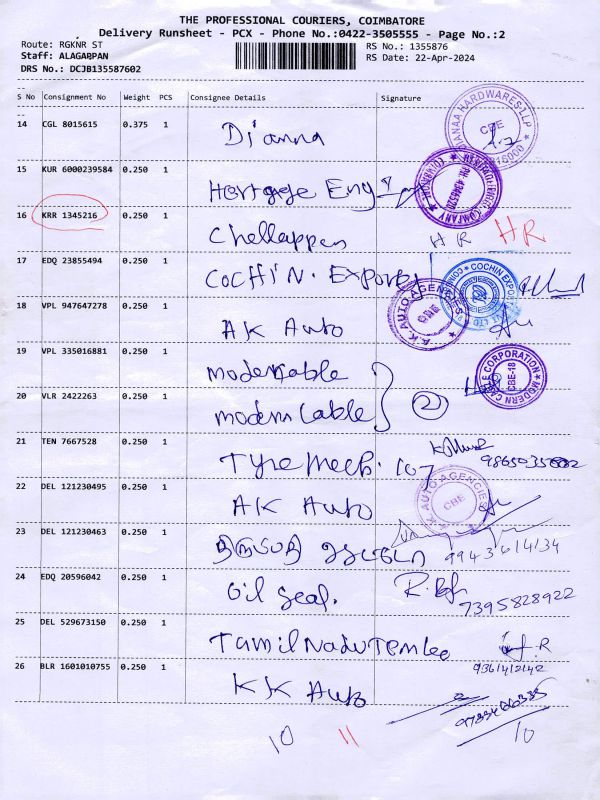 THE PROFESSIONAL COURIERS, COIMBATORE
Delivery Runsheet - PCX - Phone No.:0422-3505555 - Page No.:2
Route: RGKNR ST
RS No.: 1355876
Staff: ALAGARPAN
RS Date: 22-Apr-2024
DRS No.: DCJB135587602
S No Consignment No Weight PCS Consignee Details Signature
14 CGL 8015615 0.375 1 Dianna
HARDWARES LLP CBE
15 KUR 6000239584 0.250 1 Heritage Eng
16 KRR 1345216 0.250 1 Chellappen HR HR
17 EDQ 23855494 0.250 1 COCHIN. EXPORT
COCHIN EXPO
18 VPL 947647278 0.250 1 AK Auto
A.K. AUTO AGENCIES
19 VPL 335016881 0.250 1 modern cable
MODERN CABLE CORPORATION CBE-18
20 VLR 2422263 0.250 1 modern cable 2
21 TEN 7667528 0.250 1 Tyre mech.
22 DEL 121230495 0.250 1 AK Auto
A.K. AUTO AGENCIES CBE
23 DEL 121230463 0.250 1 9943614134
24 EDQ 20596042 0.250 1 oil seal. 7395828922
25 DEL 529673150 0.250 1 Tamil Nadu
26 BLR 1601010755 0.250 1 KK Auto
10 11 10